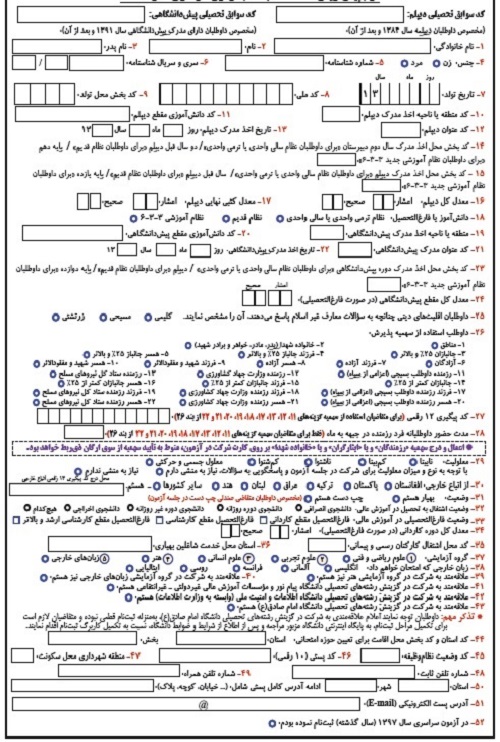 کد سوابق تحصیلی دیپلم: کد سوابق تحصیلی پیش‌دانشگاهی:
(مخصوص داوطلبان دیپلمه سال ۱۳۸۴ و بعد از آن) (مخصوص داوطلبان دارای مدرک پیش‌دانشگاهی سال ۱۳۹۱ و بعد از آن)
۱- نام خانوادگی: ۲- نام: ۳- نام پدر:
۴- جنس: زن مرد ۵- شماره شناسنامه: ۶- سری و سریال شناسنامه: /
روز ماه سال
۷- تاریخ تولد: 1 3 ۸- کد ملی: ۹- کد بخش محل تولد:
۱۰- کد منطقه یا ناحیه اخذ مدرک دیپلم: ۱۱- کد دانش‌آموزی مقطع دیپلم:
۱۲- کد عنوان دیپلم: ۱۳- تاریخ اخذ مدرک دیپلم: روز ماه سال ۱۳
۱۴- کد بخش محل اخذ مدرک سال دوم دبیرستان «برای داوطلبان نظام سالی واحدی یا ترمی واحدی»/ دو سال قبل دیپلم «برای داوطلبان نظام قدیم»/ پایه دهم
«برای داوطلبان نظام آموزشی جدید ۳-۳-۶»:
۱۵- کد بخش محل اخذ مدرک دیپلم «برای داوطلبان نظام سالی واحدی یا ترمی واحدی»/ سال قبل دیپلم «برای داوطلبان نظام قدیم»/ پایه یازده «برای داوطلبان
نظام آموزشی جدید ۳-۳-۶»:
۱۶- معدل کل دیپلم: اعشار: صحیح: ۱۷- معدل کتبی نهایی دیپلم: اعشار: صحیح:
۱۸- دانش‌آموز یا فارغ‌التحصیل: نظام ترمی واحدی یا سالی واحدی نظام قدیم نظام آموزشی ۳-۳-۶
۱۹- منطقه یا ناحیه اخذ مدرک پیش‌دانشگاهی: ۲۰- کد دانش‌آموزی مقطع پیش‌دانشگاهی:
۲۱- کد عنوان مدرک پیش‌دانشگاهی: ۲۲- تاریخ اخذ مدرک پیش‌دانشگاهی: روز ماه سال ۱۳
۲۳- کد بخش محل اخذ مدرک دوره پیش‌دانشگاهی «برای داوطلبان نظام سالی واحدی یا ترمی واحدی» / دیپلم «برای داوطلبان نظام قدیم»/ پایه دوازده «برای داوطلبان
نظام آموزشی جدید ۳-۳-۶»:
اعشار صحیح
۲۴- معدل کل مقطع پیش‌دانشگاهی (در صورت فارغ‌التحصیلی):
۲۵- داوطلبان اقلیت‌های دینی چنانچه به سؤالات معارف غیر اسلام پاسخ می‌دهند، آن را مشخص نمایند. کلیمی مسیحی زرتشتی
۲۶- داوطلب استفاده از سهمیه پذیرش:
۱- مناطق ۲- خانواده شهدا(پدر، مادر، خواهر و برادر شهید)
۳- جانبازان ۲۵٪ و بالاتر ۴- فرزند جانباز ۲۵٪ و بالاتر ۵- همسر جانباز ۲۵٪ و بالاتر
۶- آزادگان ۷- فرزند آزاده ۸- همسر آزاده ۹- فرزند شهید و مفقودالاثر ۱۰- همسر شهید و مفقودالاثر
۱۱- رزمنده داوطلب بسیجی (اعزامی از سپاه) ۱۲- رزمنده وزارت جهاد کشاورزی ۱۳- رزمنده ستاد کل نیروهای مسلح
۱۴- جانبازان کمتر از ۲۵٪ ۱۵- فرزند جانبازان کمتر از ۲۵٪ ۱۶- همسر جانبازان کمتر از ۲۵٪
۱۷- فرزند رزمنده داوطلب بسیجی (اعزامی از سپاه) ۱۸- فرزند رزمنده وزارت جهاد کشاورزی ۱۹- فرزند رزمنده ستاد کل نیروهای مسلح
۲۰- همسر رزمنده داوطلب بسیجی (اعزامی از سپاه) ۲۱- همسر رزمنده وزارت جهاد کشاورزی ۲۲- همسر رزمنده ستاد کل نیروهای مسلح
۲۷- کد پیگیری ۱۲ رقمی (برای متقاضیان استفاده از سهمیه گزینه‌های ۱۱، ۱۲، ۱۳، ۱۷، ۱۸، ۱۹، ۲۰، ۲۱ و ۲۲ از بند ۲۶):
۲۸- مدت حضور داوطلبانه فرد رزمنده در جبهه به ماه (فقط برای متقاضیان سهمیه گزینه‌های ۱۱، ۱۲، ۱۳، ۱۷، ۱۸، ۱۹، ۲۰، ۲۱ و ۲۲ از بند ۲۶):
* اعمال و درج سهمیه «رزمندگان» و یا «ایثارگران» و یا «خانواده شهدا» بر روی کارت شرکت در آزمون، منوط به تأیید سهمیه از سوی ارگان ذی‌ربط خواهد بود.
۲۹- معلولیت: نابینا کم‌بینا ناشنوا کم‌شنوا معلول جسمی و حرکتی
با توجه به نوع و میزان معلولیت برای شرکت در جلسه آزمون و پاسخگویی به سؤالات، نیاز به منشی دارم نیاز به منشی ندارم
۳۰- از اتباع خارجی: افغانستان پاکستان ترکیه عراق لبنان هند سایر کشورها هستم.
۳۱- وضعیت: بهیار هستم چپ دست هستم (مخصوص داوطلبان متقاضی صندلی چپ دست در جلسه آزمون)
۳۲- وضعیت اشتغال به تحصیل در آموزش عالی: دانشجوی انصرافی دانشجوی دوره روزانه دانشجوی دوره غیر روزانه دانشجوی اخراجی هیچکدام
۳۳- وضعیت فارغ‌التحصیلی در آموزش عالی: فارغ‌التحصیل مقطع کاردانی فارغ‌التحصیل مقطع کارشناسی فارغ‌التحصیل مقطع کارشناسی ارشد و بالاتر
۳۴- معدل کل دوره کاردانی (در صورت فارغ‌التحصیلی): اعشار صحیح
۳۵- کد محل اشتغال کارکنان رسمی و پیمانی: ۳۶- استان محل خدمت شاغلین بهیاری:
۳۷- گروه آزمایشی: ۱ علوم ریاضی و فنی ۲ علوم تجربی ۳ علوم انسانی ۴ هنر ۵ زبان‌های خارجی
۳۸- زبان خارجی که امتحان خواهم داد: انگلیسی آلمانی فرانسه روسی ایتالیایی
۳۹- علاقه‌مند به شرکت در گروه آزمایشی هنر نیز هستم. ۴۰- علاقه‌مند به شرکت در گروه آزمایشی زبان‌های خارجی نیز هستم.
۴۱- علاقه‌مند به شرکت در گزینش رشته‌های تحصیلی دانشگاه پیام نور و مؤسسات آموزش عالی غیردولتی - غیرانتفاعی هستم.
۴۲- علاقه‌مند به شرکت در گزینش رشته‌های تحصیلی دانشگاه اطلاعات و امنیت ملی (وابسته به وزارت اطلاعات) هستم.
۴۳- علاقه‌مند به شرکت در گزینش رشته‌های تحصیلی دانشگاه امام صادق(ع) هستم.
* تذکر مهم: داوطلبان توجه نمایند اعلام علاقه‌مندی به شرکت در گزینش رشته‌های تحصیلی دانشگاه امام صادق(ع)، به‌منزله ثبت‌نام قطعی نبوده و متقاضیان لازم است
برای تکمیل مراحل ثبت‌نام، به پایگاه اینترنتی دانشگاه مزبور مراجعه و پس از اطلاع از شرایط و ضوابط دانشگاه، نسبت به تکمیل کاربرگ ثبت‌نام اقدام نمایند.
۴۴- کد استان و کد بخش محل اقامت برای تعیین حوزه امتحانی: استان: بخش:
۴۵- کد وضعیت نظام‌وظیفه: ۴۶- کد پستی (۱۰ رقمی): ۴۷- منطقه شهرداری محل سکونت:
۴۸- شماره تلفن ثابت: ۴۹- شماره تلفن همراه:
۵۰- استان: شهر: ادامه آدرس کامل پستی شامل: (... خیابان، کوچه، پلاک):
۵۱- آدرس پست الکترونیکی (E-mail): @
۵۲- در آزمون سراسری سال ۱۳۹۷ (سال گذشته) ثبت‌نام نموده بودم.